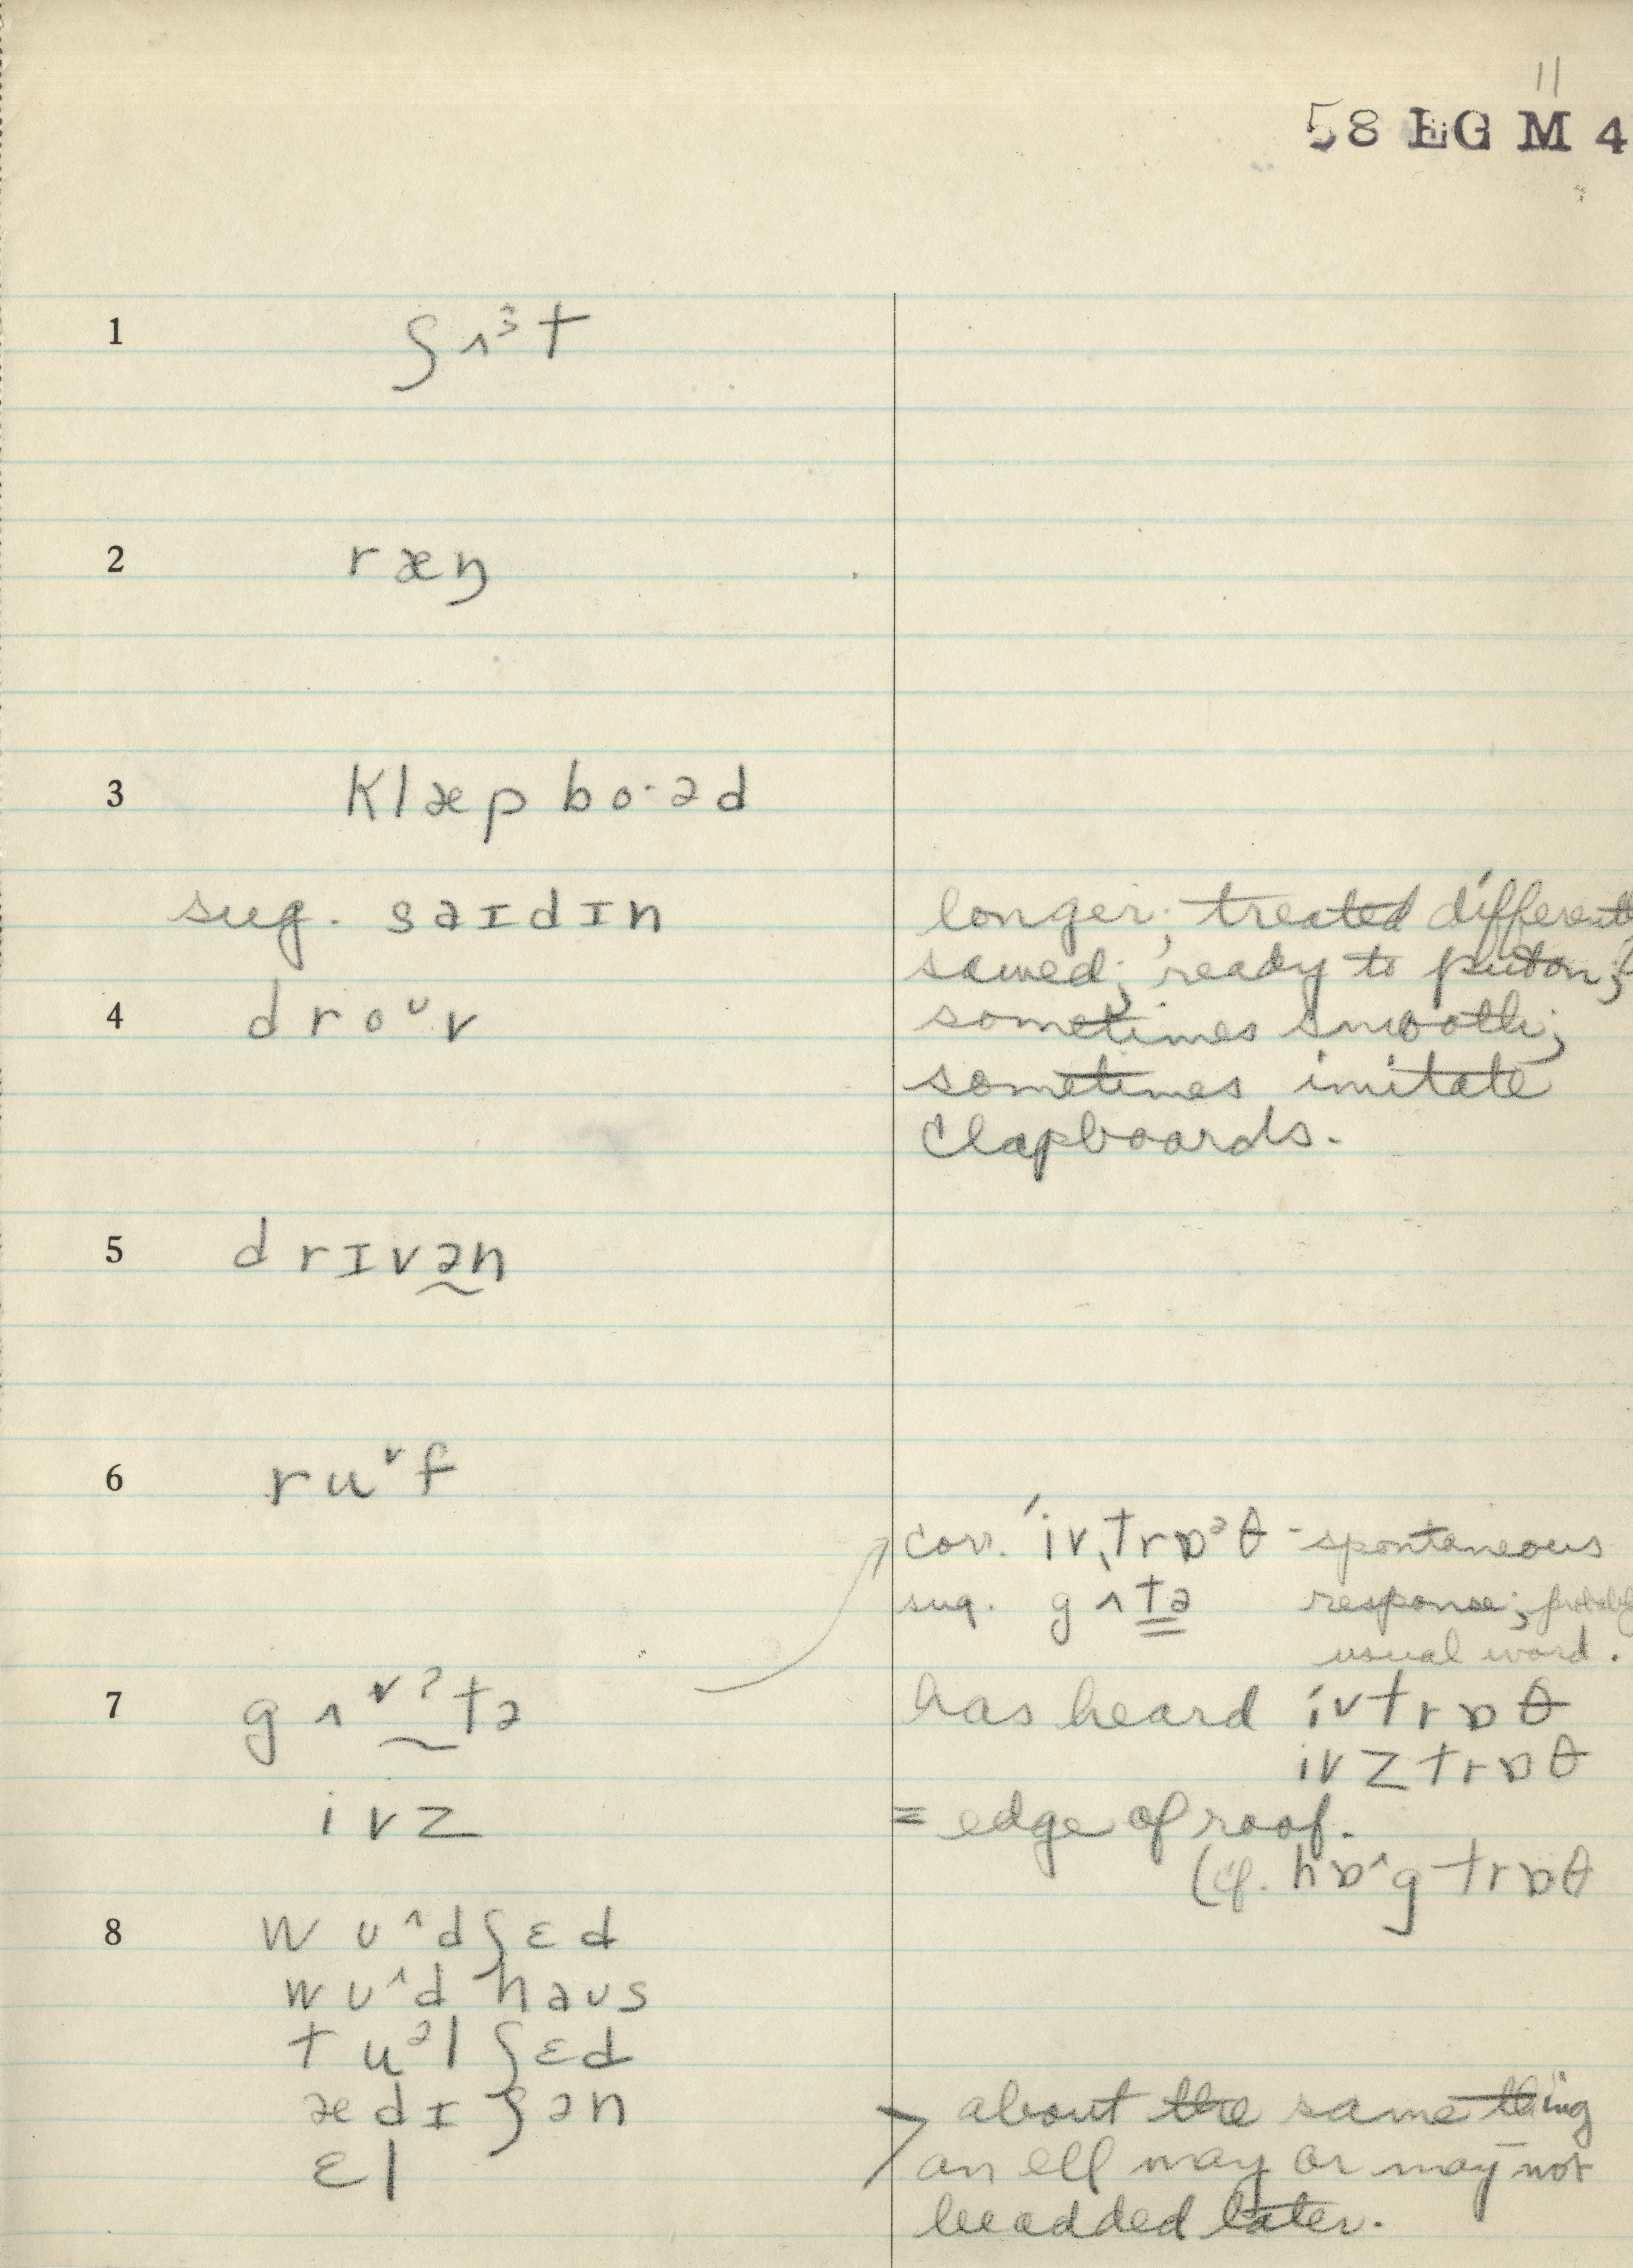 11
58 EG M 4
1 ʃʌᶟt
2 ræŋ
3 klæp bo·əd
sug. saɪdɪn longer; treated different
sawed; ready to put on;
4 droᶷv sometimes smooth;
sometimes imitate
clapboards.
5 drɪvə̰n
6 ruᵛf
corr. ˈivˌtrɒᵊθ - spontaneous
sug. gʌtə response; probably
usual word.
7 gʌᵛˀtə has heard ivtrɒθ
ivztrɒθ
ivz = edge of roof.
(cf. hɒ^gtrɒθ
8 wʊ^dʃɛd
wʊ^d haʊs
tuᵊlʃɛd
ædɪʃən about the same thing
ɛl an ell may or may not
be added later.